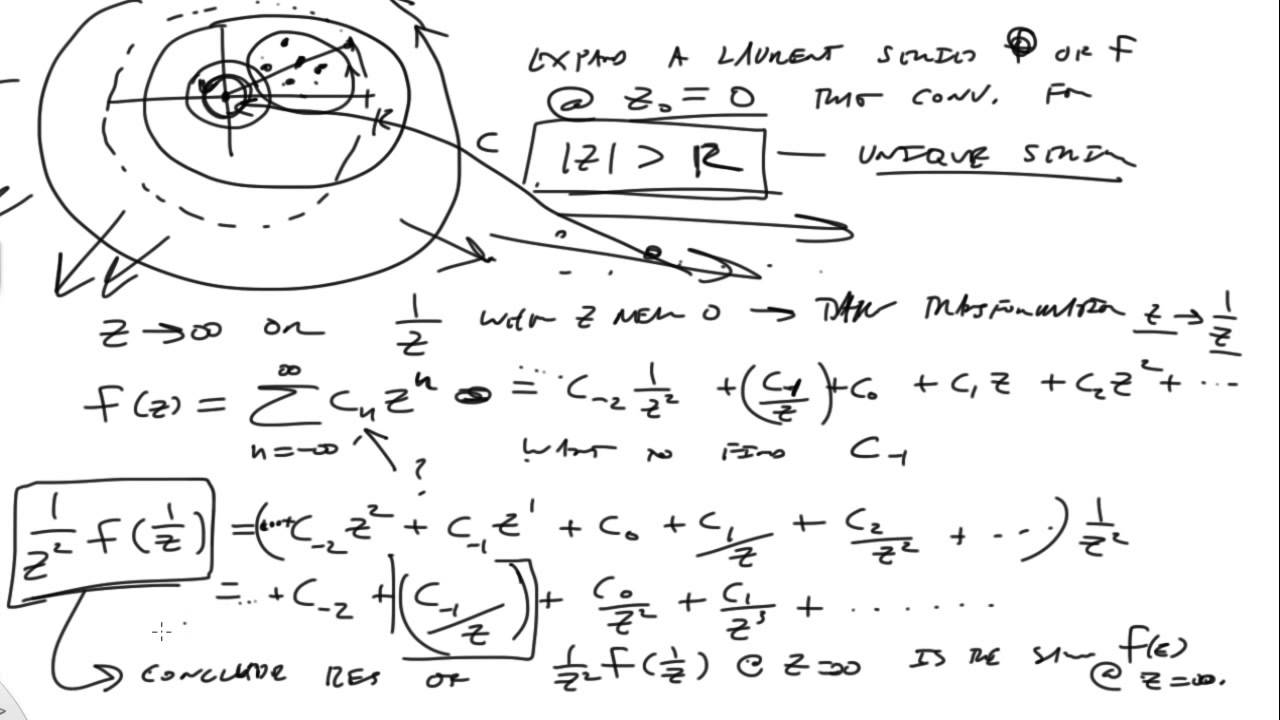 EXPAND A LAURENT SERIES OF F
@ z₀ = 0 THAT CONV. FOR
|z| > R — UNIQUE SERIES
R
C
z → ∞ OR 1/z WITH z NEAR 0 → TAKE TRANSFORMATION z → 1/z
f(z) = ∑_{n=-∞}^{∞} Cₙ zⁿ = ... C₋₂ 1/z² + (C₋₁/z) + C₀ + C₁ z + C₂ z² + ...
? WANT TO FIND C₋₁
1/z² f(1/z) = (... + C₋₂ z² + C₋₁ z¹ + C₀ + C₁/z + C₂/z² + ...) 1/z²
= ... + C₋₂ + (C₋₁/z) + C₀/z² + C₁/z³ + .......
→ CONCLUDE RES OF 1/z² f(1/z) @ z = 0 IS THE SAME f(z) @ z = ∞.